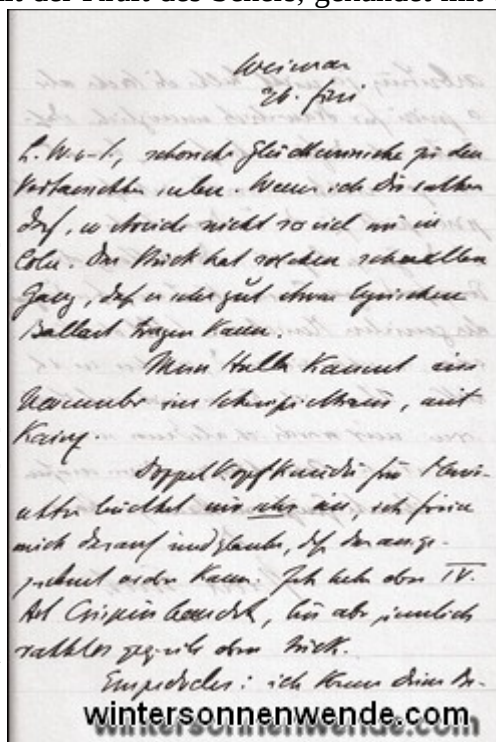 der des gekündet mit
Weimar
26. Juni
schönste Glückwünsche zu den
Vertauschten Seelen. Wenn ich Dir rathen
darf, so streiche nicht so viel wie in
Cöln. Das Stück hat solchen schnellen
Gang, daß es sehr gut etwas lyrischen
Ballast tragen kann.
Mein kommt im
November ins Schauspielhaus, mit
Kainz.
für Mario-
netten leuchtet mir sehr ein, ich freue
mich darauf und glaube, daß das ausge-
zeichnet werden kann. Ich habe den IV.
Act Crispin beendet, bin aber ziemlich
rathlos gegenüber dem Stück.
Empedocles: ich kenne Deine Be-
wintersonnenwende.com